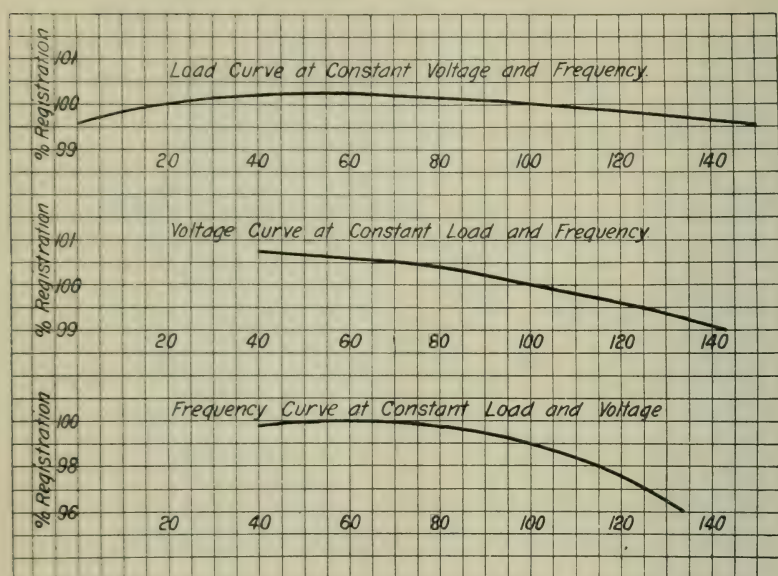 % Registration
101
100
99
Load Curve at Constant Voltage and Frequency.
20 40 60 80 100 120 140
% Registration
101
100
99
Voltage Curve at Constant Load and Frequency
20 40 60 80 100 120 140
% Registration
100
98
96
Frequency Curve at Constant Load and Voltage
20 40 60 80 100 120 140